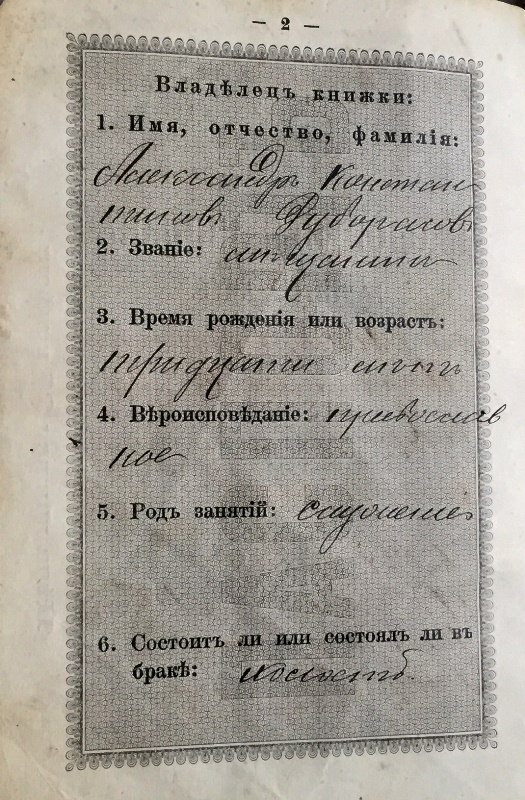 — 2 —
Владѣлецъ книжки:
1. Имя, отчество, фамилія:
Александръ Констан
тиновъ
2. Званіе:
3. Время рожденія или возрастъ:
тридцати
4. Вѣроисповѣданіе: православ
ное
5. Родъ занятій: служеніе
6. Состоитъ ли или состоялъ ли въ
бракѣ: холостъ